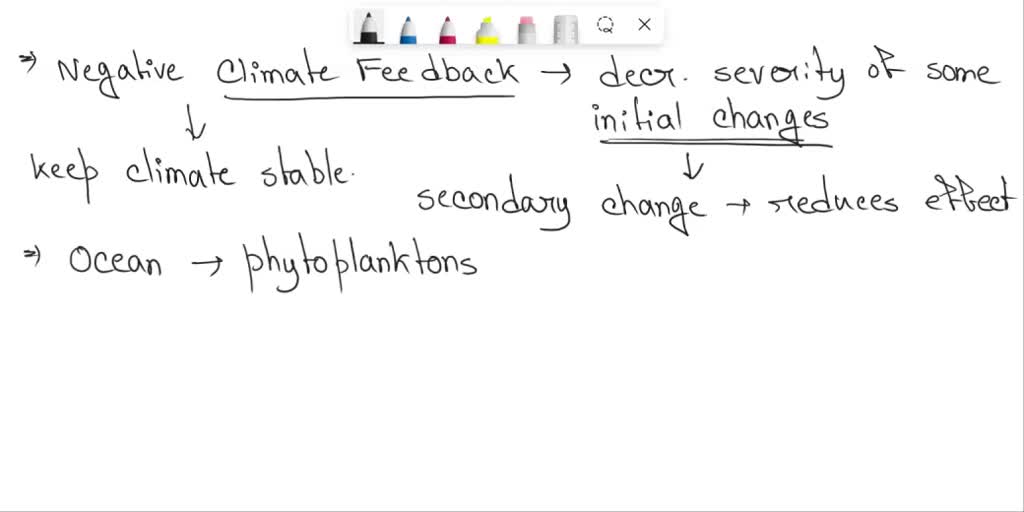 ⇒ Negative Climate Feedback → decr. severity of some
initial changes
↓
keep climate stable.
↓
secondary change → reduces effect
⇒ Ocean → phytoplanktons